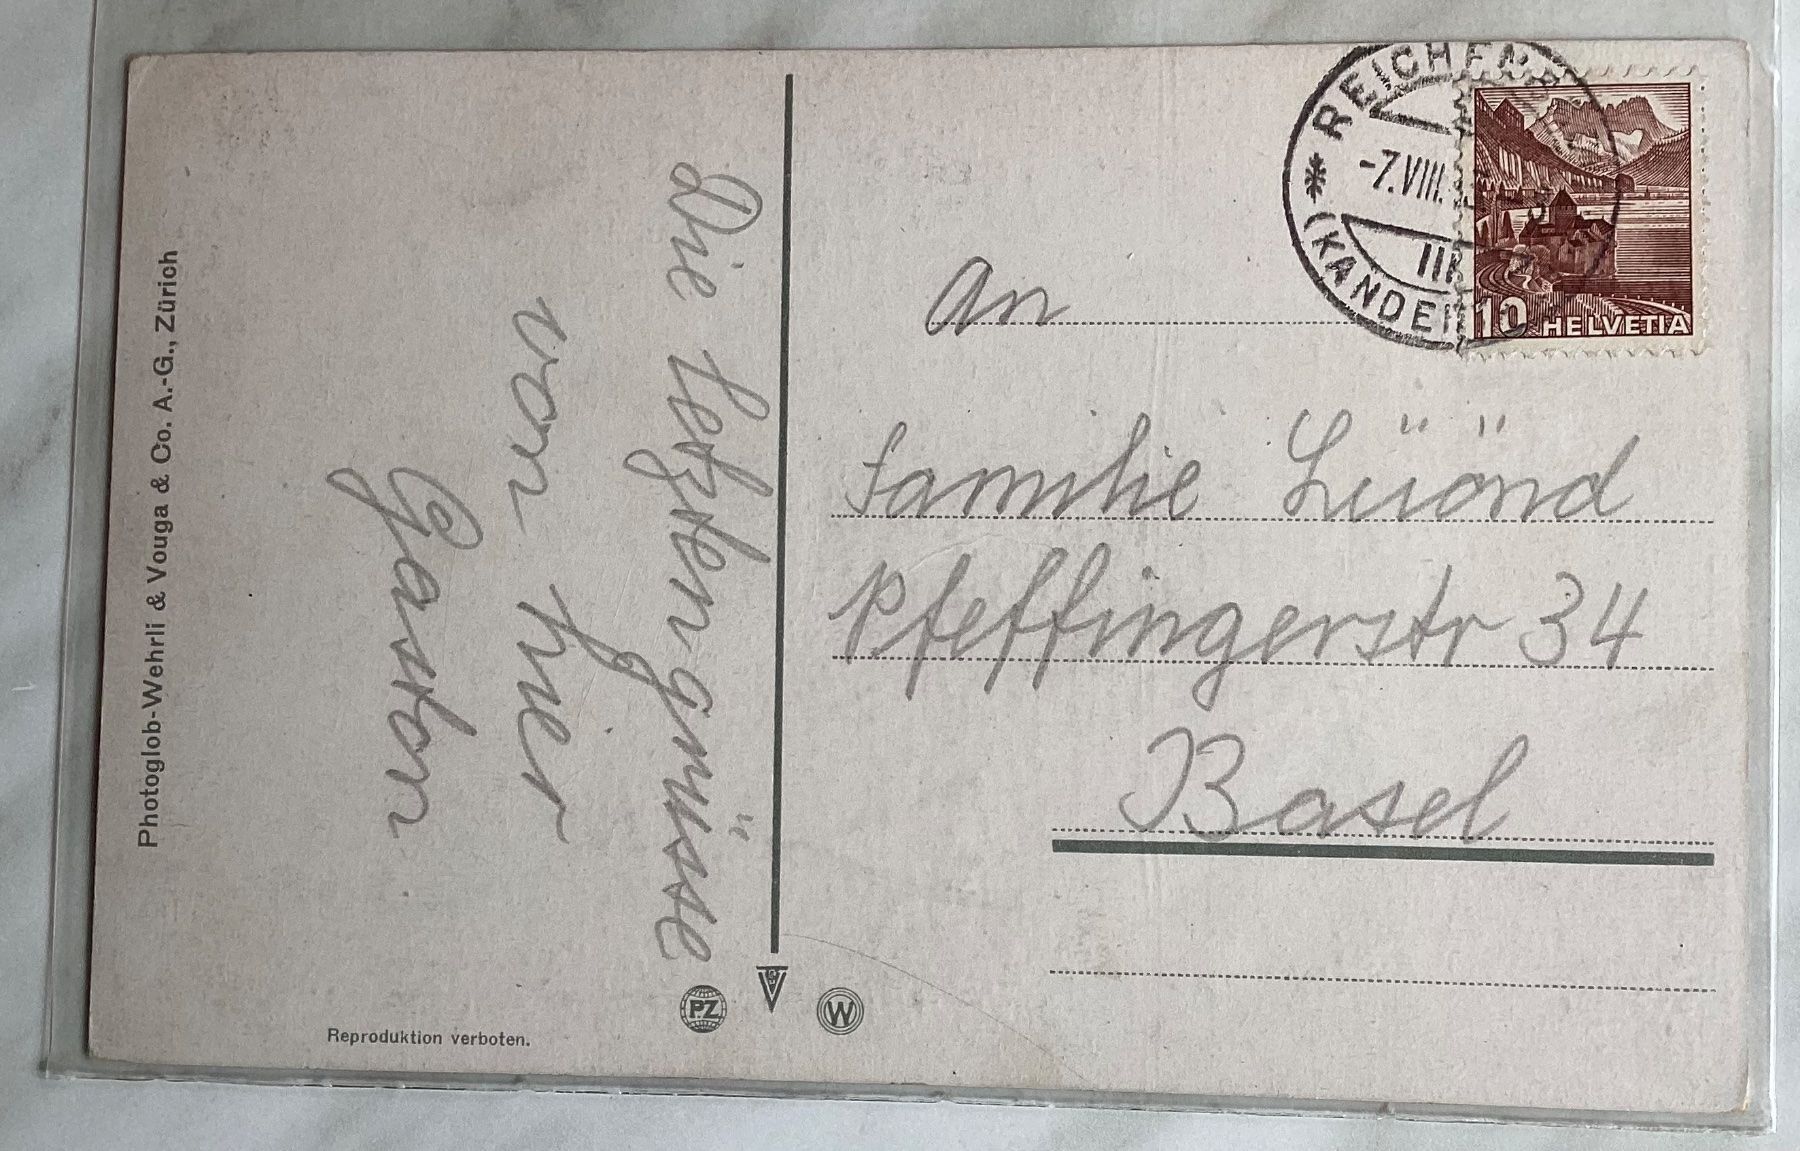 Photoglob-Wehrli & Vouga & Co. A.-G., Zürich
Die letzten grüsse
von hier
Gaston
Reproduktion verboten.
PZ
W
REICHENB
-7.VIII.
(KANDE
10 HELVETIA
An
Familie Lüönd
Pfeffingerstr 34
Basel